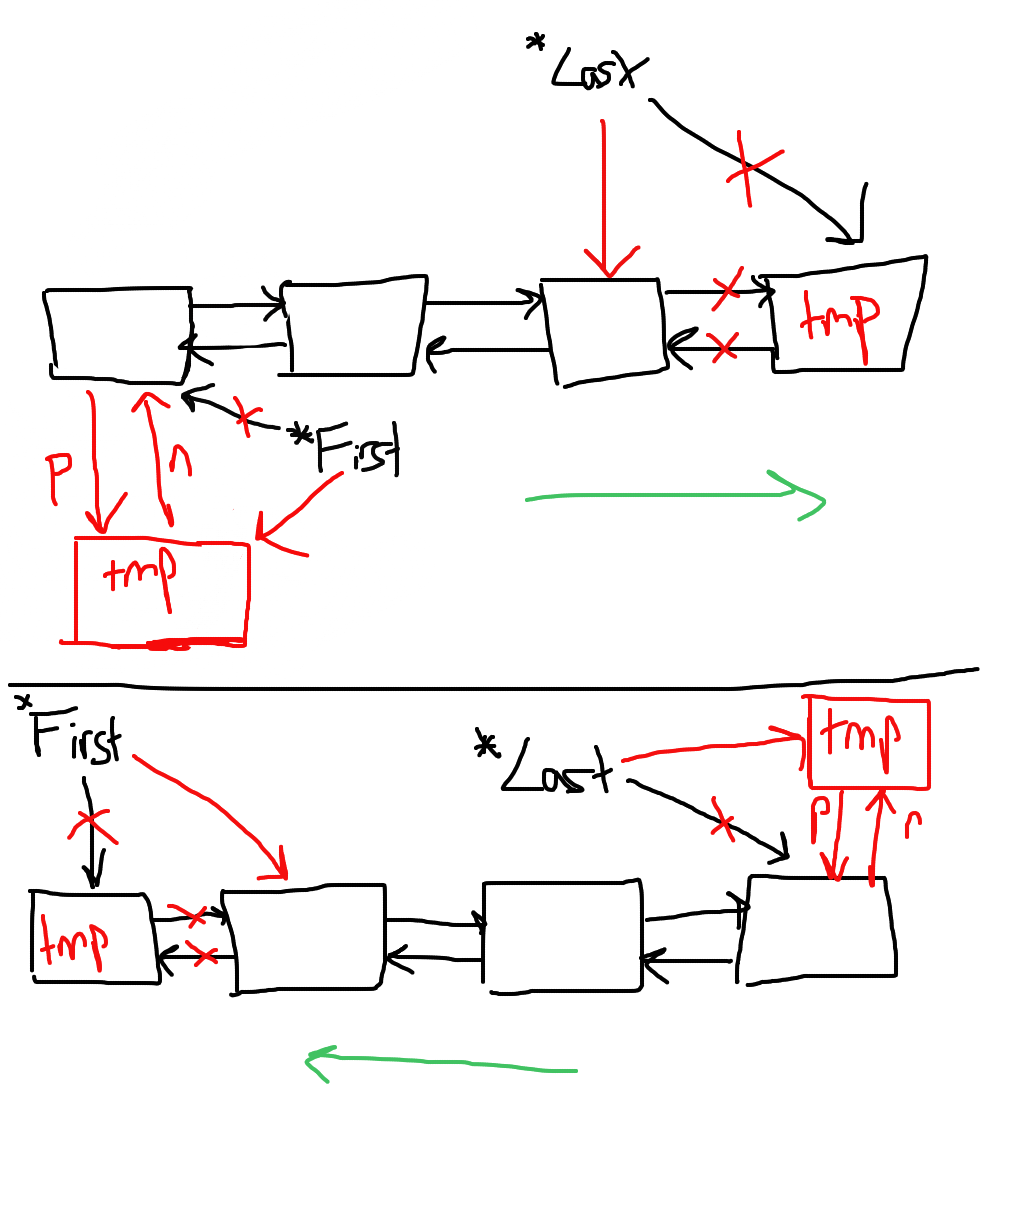 *Last
tmp
P
n
*First
tmp
*First
*Last
tmp
P
n
tmp